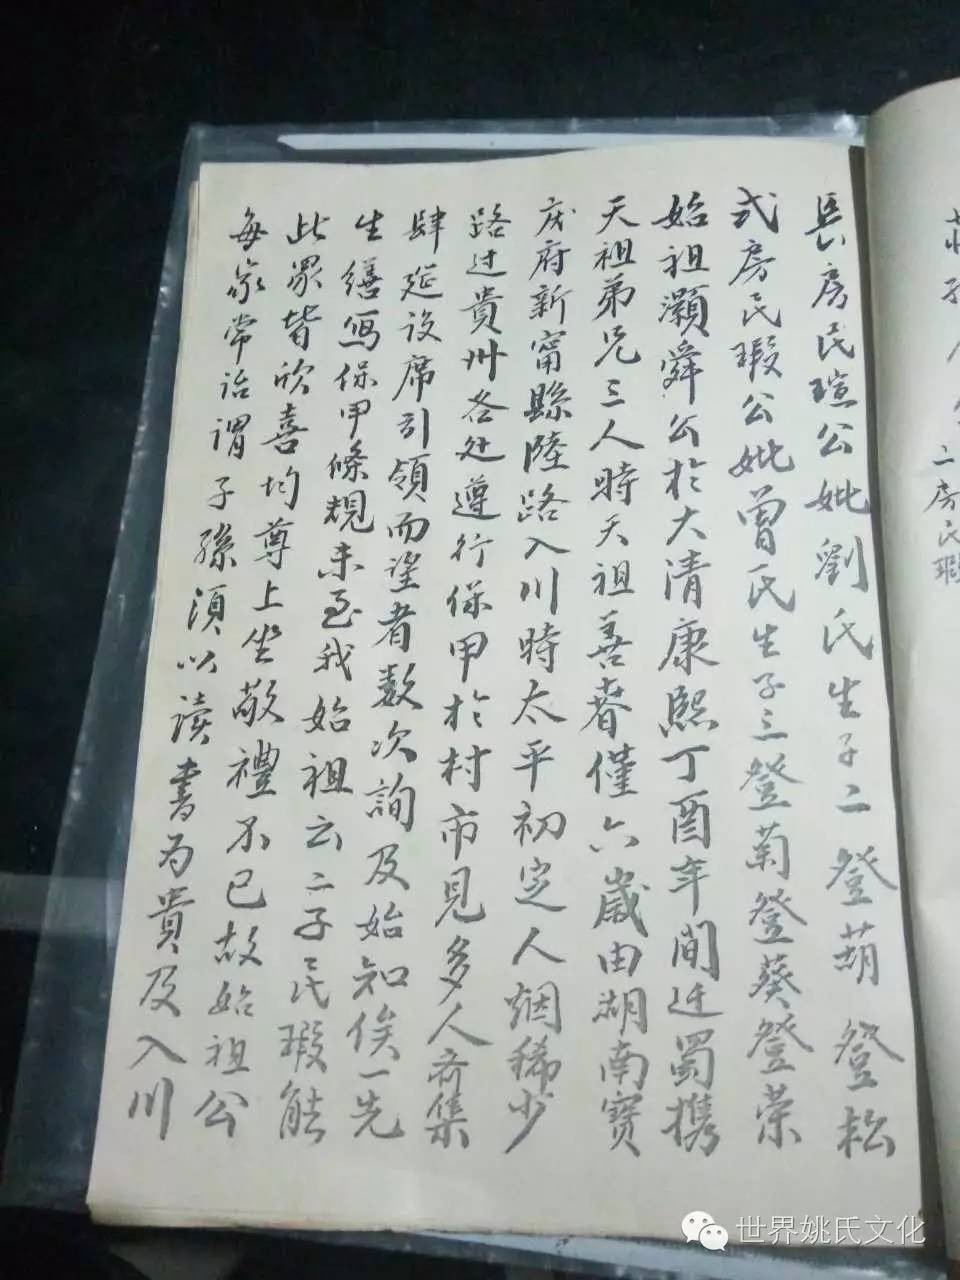 二房民瑕
長房民瑄公妣劉氏生子二登葫登松
弍房民瑕公妣曾氏生子三登菊登葵登荣
始祖灝舜公於大清康熙丁酉年間迁蜀携
天祖弟兄三人時天祖善春僅六歲由湖南寳
庆府新甯縣陸路入川時太平初定人烟稀少
路过貴州各处遵行保甲於村市見多人齐集
肆筵设席引領而望者数次詢及始知俟一先
生缮写保甲條规未至我始祖云二子民瑕能
此眾皆欣喜均尊上坐敬禮不已故始祖公
每家常诒謂子孫須以读書为貴及入川
世界姚氏文化